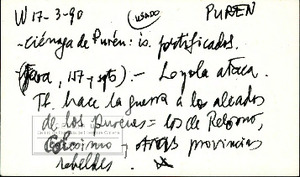 W 17-3-90 USADO PUREN
- ciénaga de Purén: is. fortificados.
(Jara, 157 y sgts). - Loyola ataca.
Tb. hace la guerra a los alzados
de los purenes = los de Relomo,
y otras provincias
rebeldes.